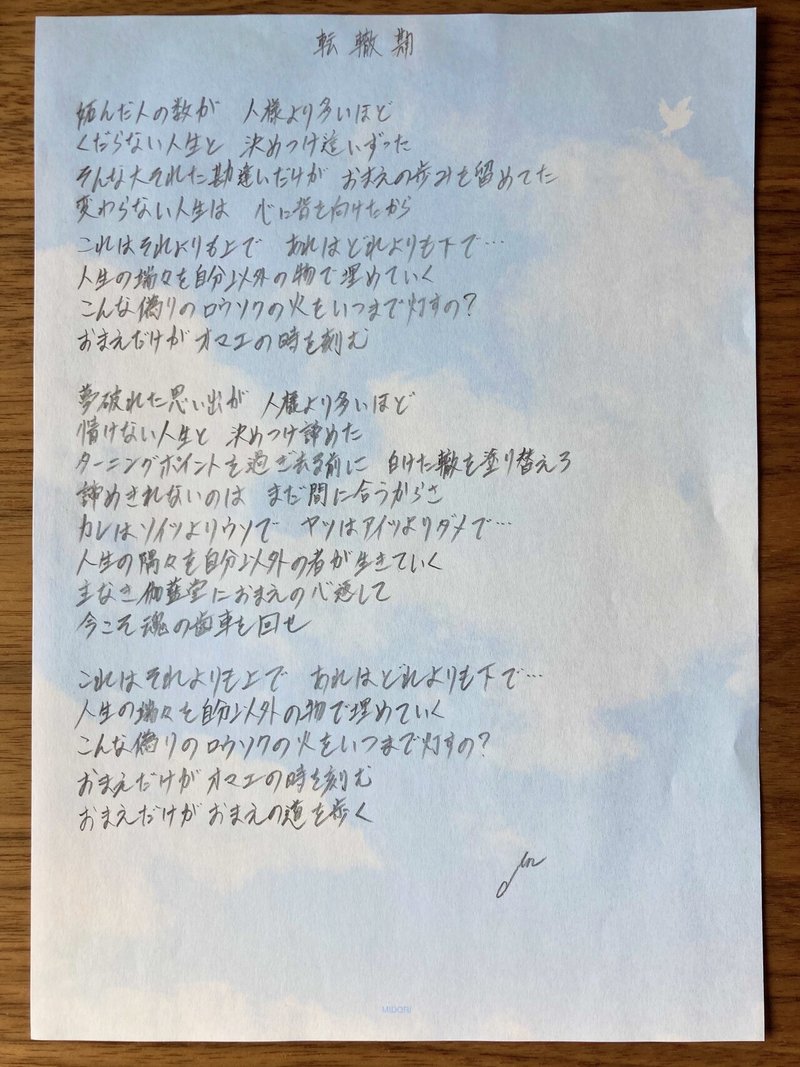 転轍期
妬んだ人の数が 人様より多いほど
くだらない人生と 決めつけ這いずった
そんな大それた勘違いだけが おまえの歩みを留めてた
変わらない人生は 心に背を向けたから
これはそれよりも上で あれはどれよりも下で…
人生の端々を自分以外の物で埋めていく
こんな偽りのロウソクの火をいつまで灯すの?
おまえだけがオマエの時を刻む
夢破れた思い出が 人様より多いほど
情けない人生と 決めつけ諦めた
ターニングポイントを過ぎ去る前に 白けた轍を塗り替えろ
諦めきれないのは まだ間に合うからさ
カレはソイツよりウソで ヤツはアイツよりダメで…
人生の隅々を自分以外の者が生きていく
主なき伽藍堂におまえの心慿して
今こそ魂の歯車を回せ
これはそれよりも上で あれはどれよりも下で…
人生の端々を自分以外の物で埋めていく
こんな偽りのロウソクの火をいつまで灯すの?
おまえだけがオマエの時を刻む
おまえだけがおまえの道を歩く
MIDORI